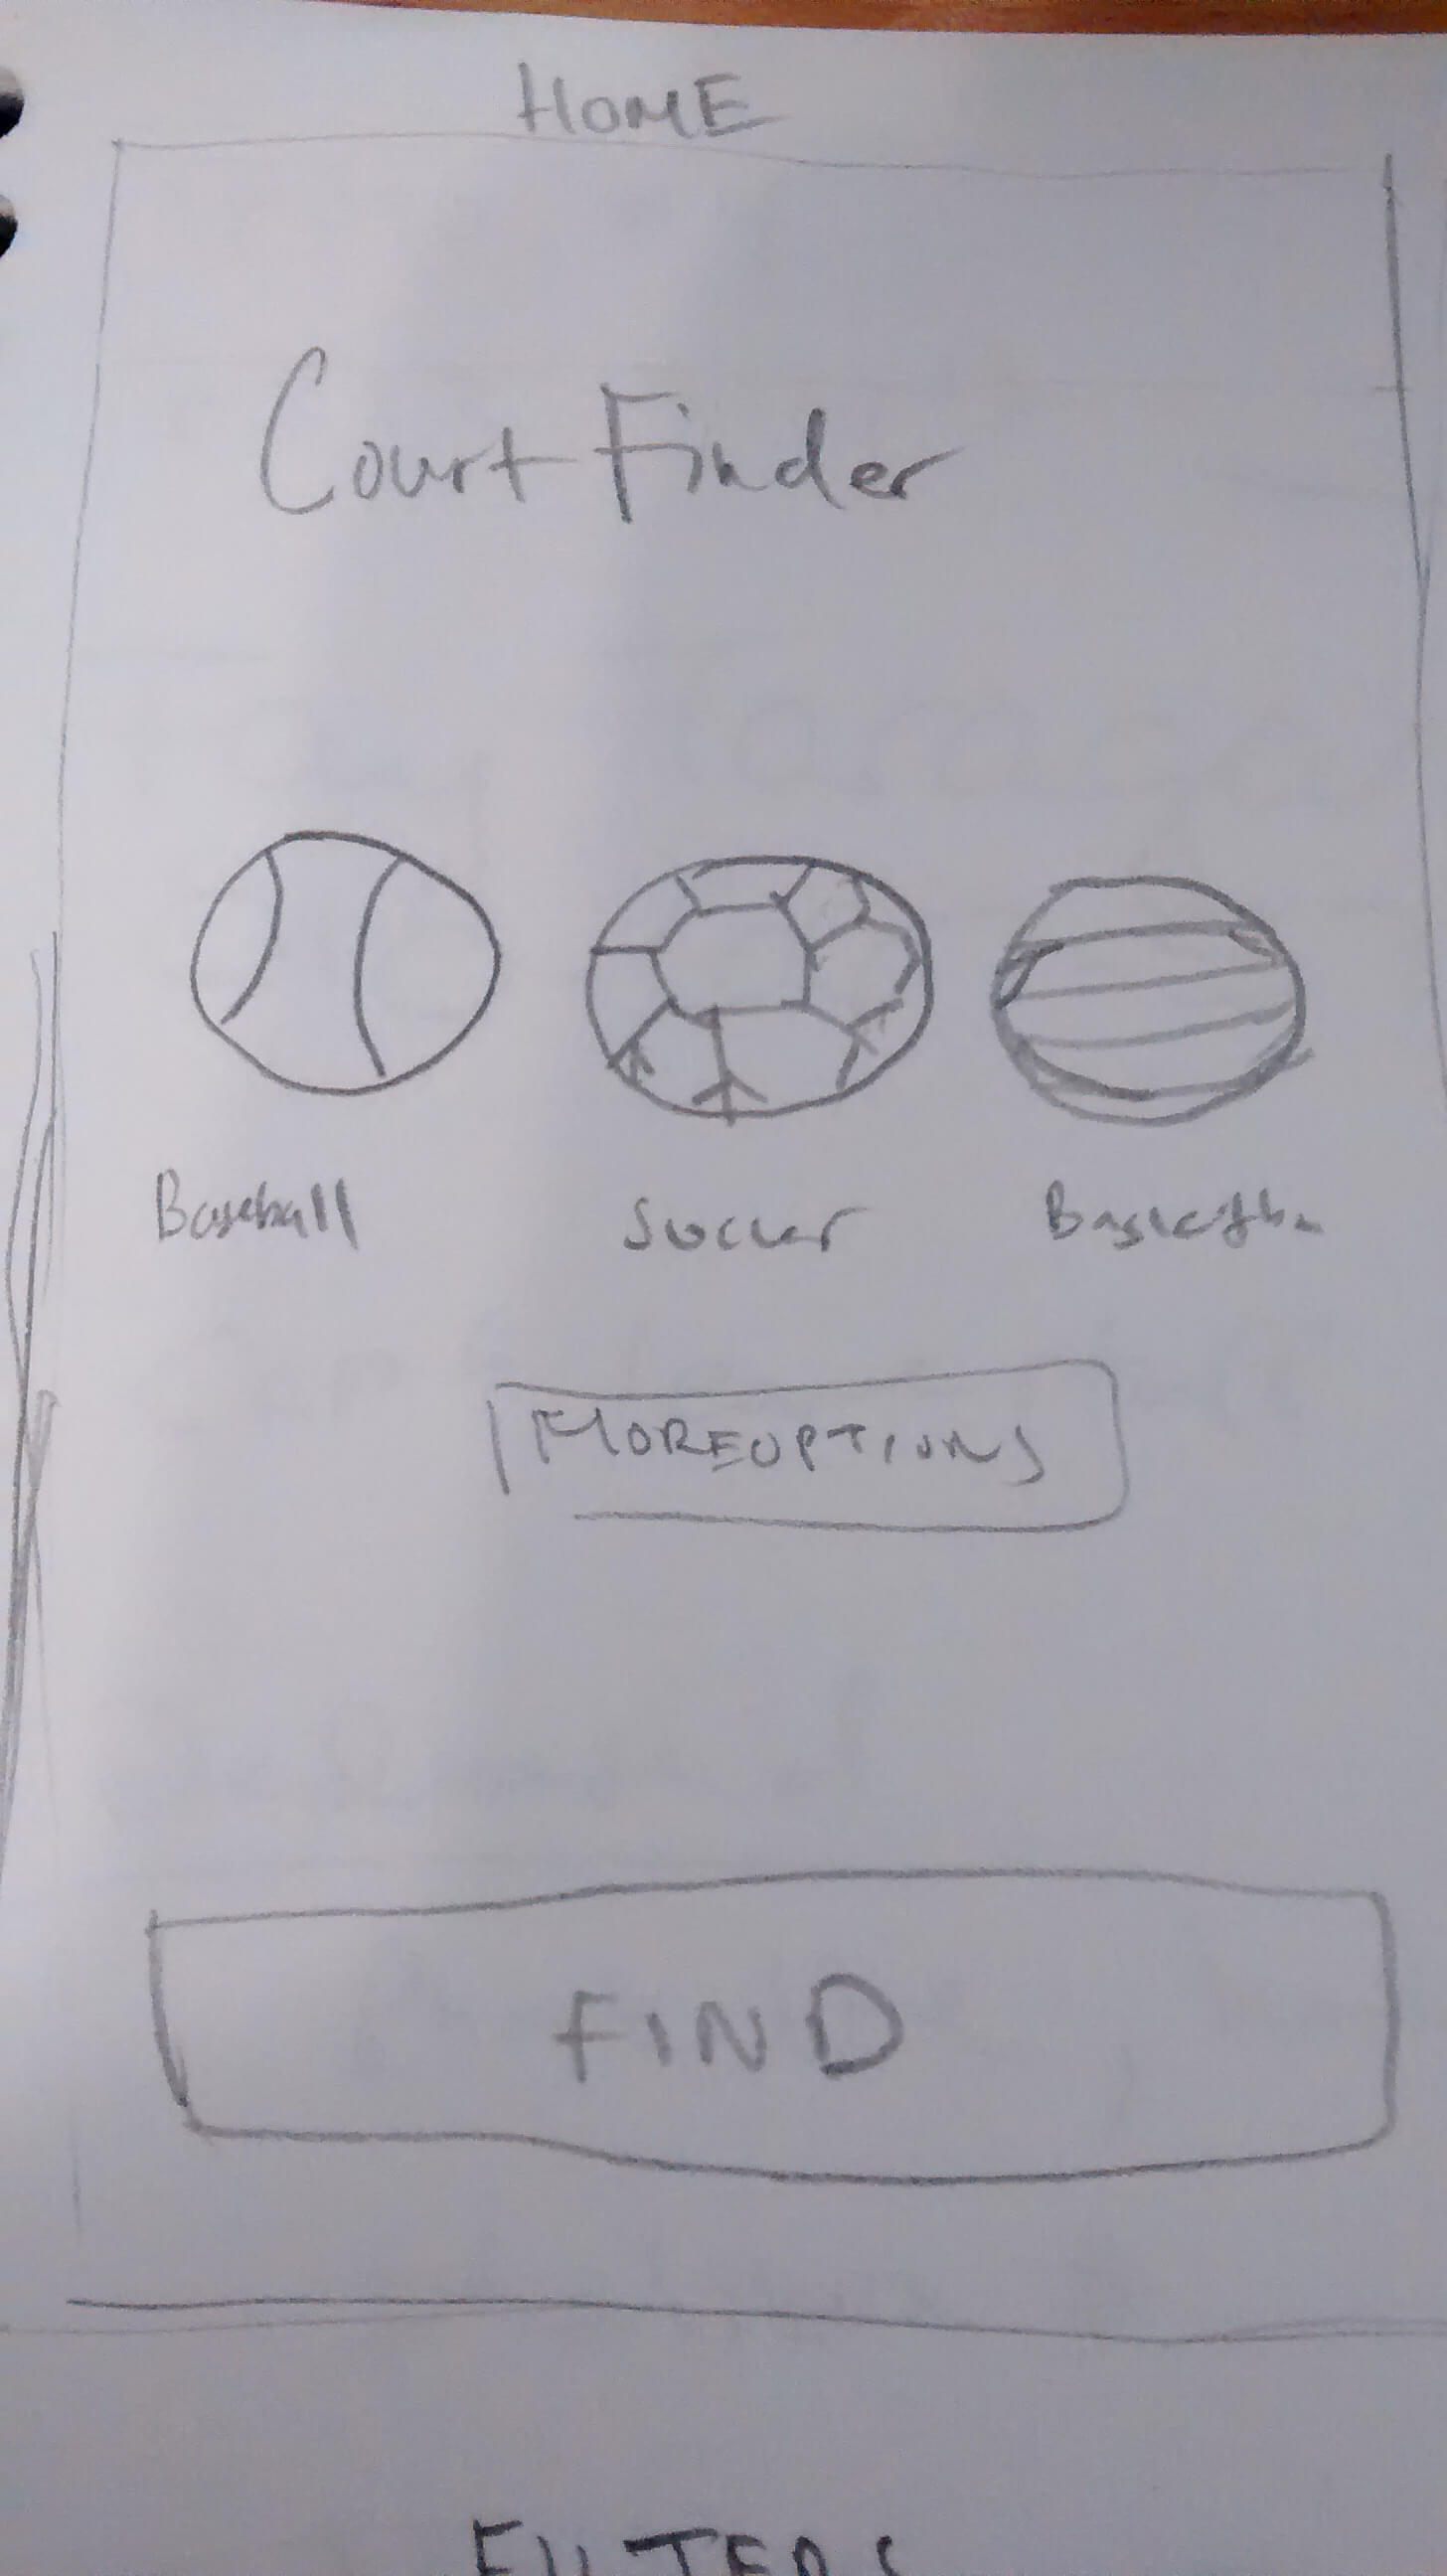 HOME
Court Finder
Baseball Soccer Basketba
MORE OPTIONS
FIND
FILTERS